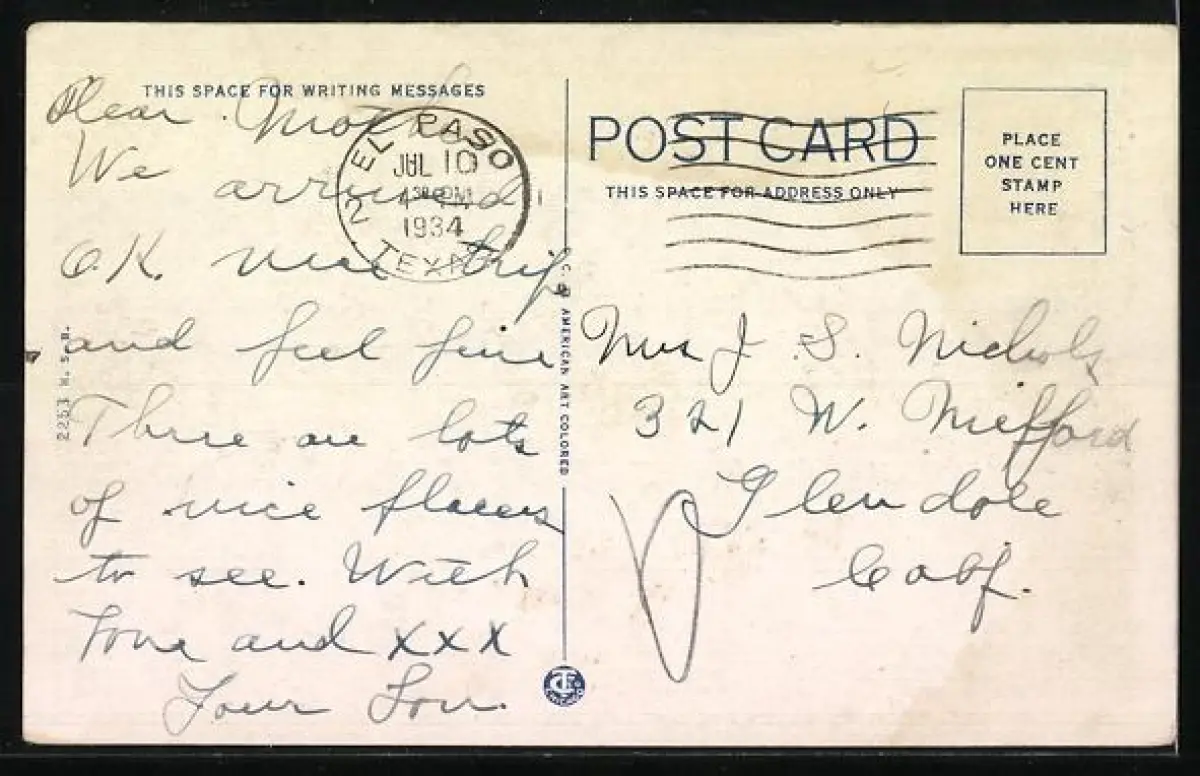 THIS SPACE FOR WRITING MESSAGES
Dear Moth
We arrived
O.K. nice trip
and feel fine
There are lots
of nice places
to see. With
Love and xxx
Your Son.
2 EL PASO
JUL 10
1934
TEXAS
2253 H.S.B.
C. T. AMERICAN ART COLORED
CTC
CHICAGO
POST CARD
THIS SPACE FOR ADDRESS ONLY
PLACE
ONE CENT
STAMP
HERE
Mrs J. S. Nichols
321 W.
Glendale
Calif.